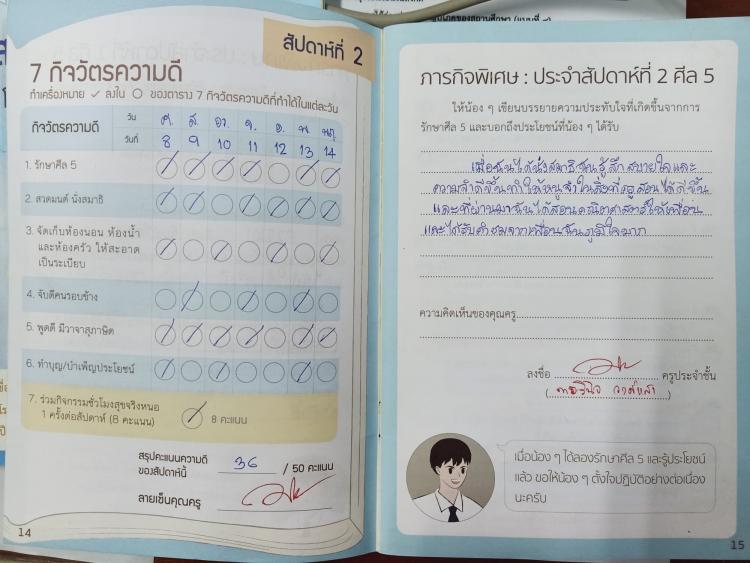 สัปดาห์ที่ 2
7 กิจวัตรความดี
ทำเครื่องหมาย ✓ ลงใน ○ ของตาราง 7 กิจวัตรความดีที่ทำได้ในแต่ละวัน
กิจวัตรความดี
วัน ศ. ส. อา. จ. อ. พ. พฤ.
วันที่ 8 9 10 11 12 13 14
1. รักษาศีล 5
2. สวดมนต์ นั่งสมาธิ
3. จัดเก็บห้องนอน ห้องน้ำ
และห้องครัว ให้สะอาด
เป็นระเบียบ
4. จับดีคนรอบข้าง
5. พูดดี มีวาจาสุภาษิต
6. ทำบุญ/บำเพ็ญประโยชน์
7. ร่วมกิจกรรมชั่วโมงสุขจริงหนอ
1 ครั้งต่อสัปดาห์ (8 คะแนน)
8 คะแนน
สรุปคะแนนความดี
ของสัปดาห์นี้ 36 / 50 คะแนน
ลายเซ็นคุณครู
14
(แบบที่
ภารกิจพิเศษ : ประจำสัปดาห์ที่ 2 ศีล 5
ให้น้อง ๆ เขียนบรรยายความประทับใจที่เกิดขึ้นจากการ
รักษาศีล 5 และบอกถึงประโยชน์ที่น้อง ๆ ได้รับ
เมื่อฉันได้นั่งสมาธิฉันรู้สึกสบายใจและ
ความจำดีขึ้นทำให้หนูจำในสิ่งที่ครูสอนได้ดีขึ้น
และที่ผ่านมาฉันได้สอนคณิตศาสตร์ให้เพื่อน
และได้รับคำชมจากเพื่อนฉันภูมิใจมาก
ความคิดเห็นของคุณครู
ลงชื่อ ครูประจำชั้น
เมื่อน้อง ๆ ได้ลองรักษาศีล 5 และรู้ประโยชน์
แล้ว ขอให้น้อง ๆ ตั้งใจปฏิบัติอย่างต่อเนื่อง
นะครับ
15